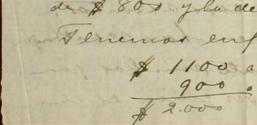 de $ 800 y la de
Tenemos en
$ 1100 a
900 a
$ 2.000